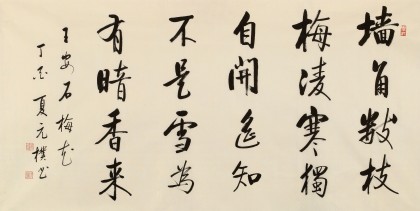 墙角數枝
梅凌寒獨
自開遥知
不是雪為
有暗香来
王安石梅花
丁 夏元樸书